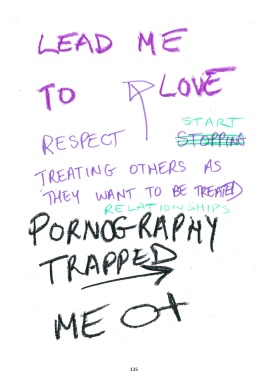 LEAD ME
TO LOVE
START
RESPECT STOPPING
TREATING OTHERS AS
THEY WANT TO BE TREATED
RELATIONSHIPS
PORNOGRAPHY
TRAPPED
ME
135